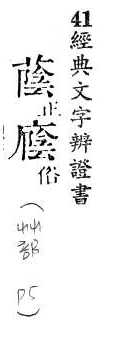 41經典文字辨證書
蔭正廕俗
(艸部 P5)